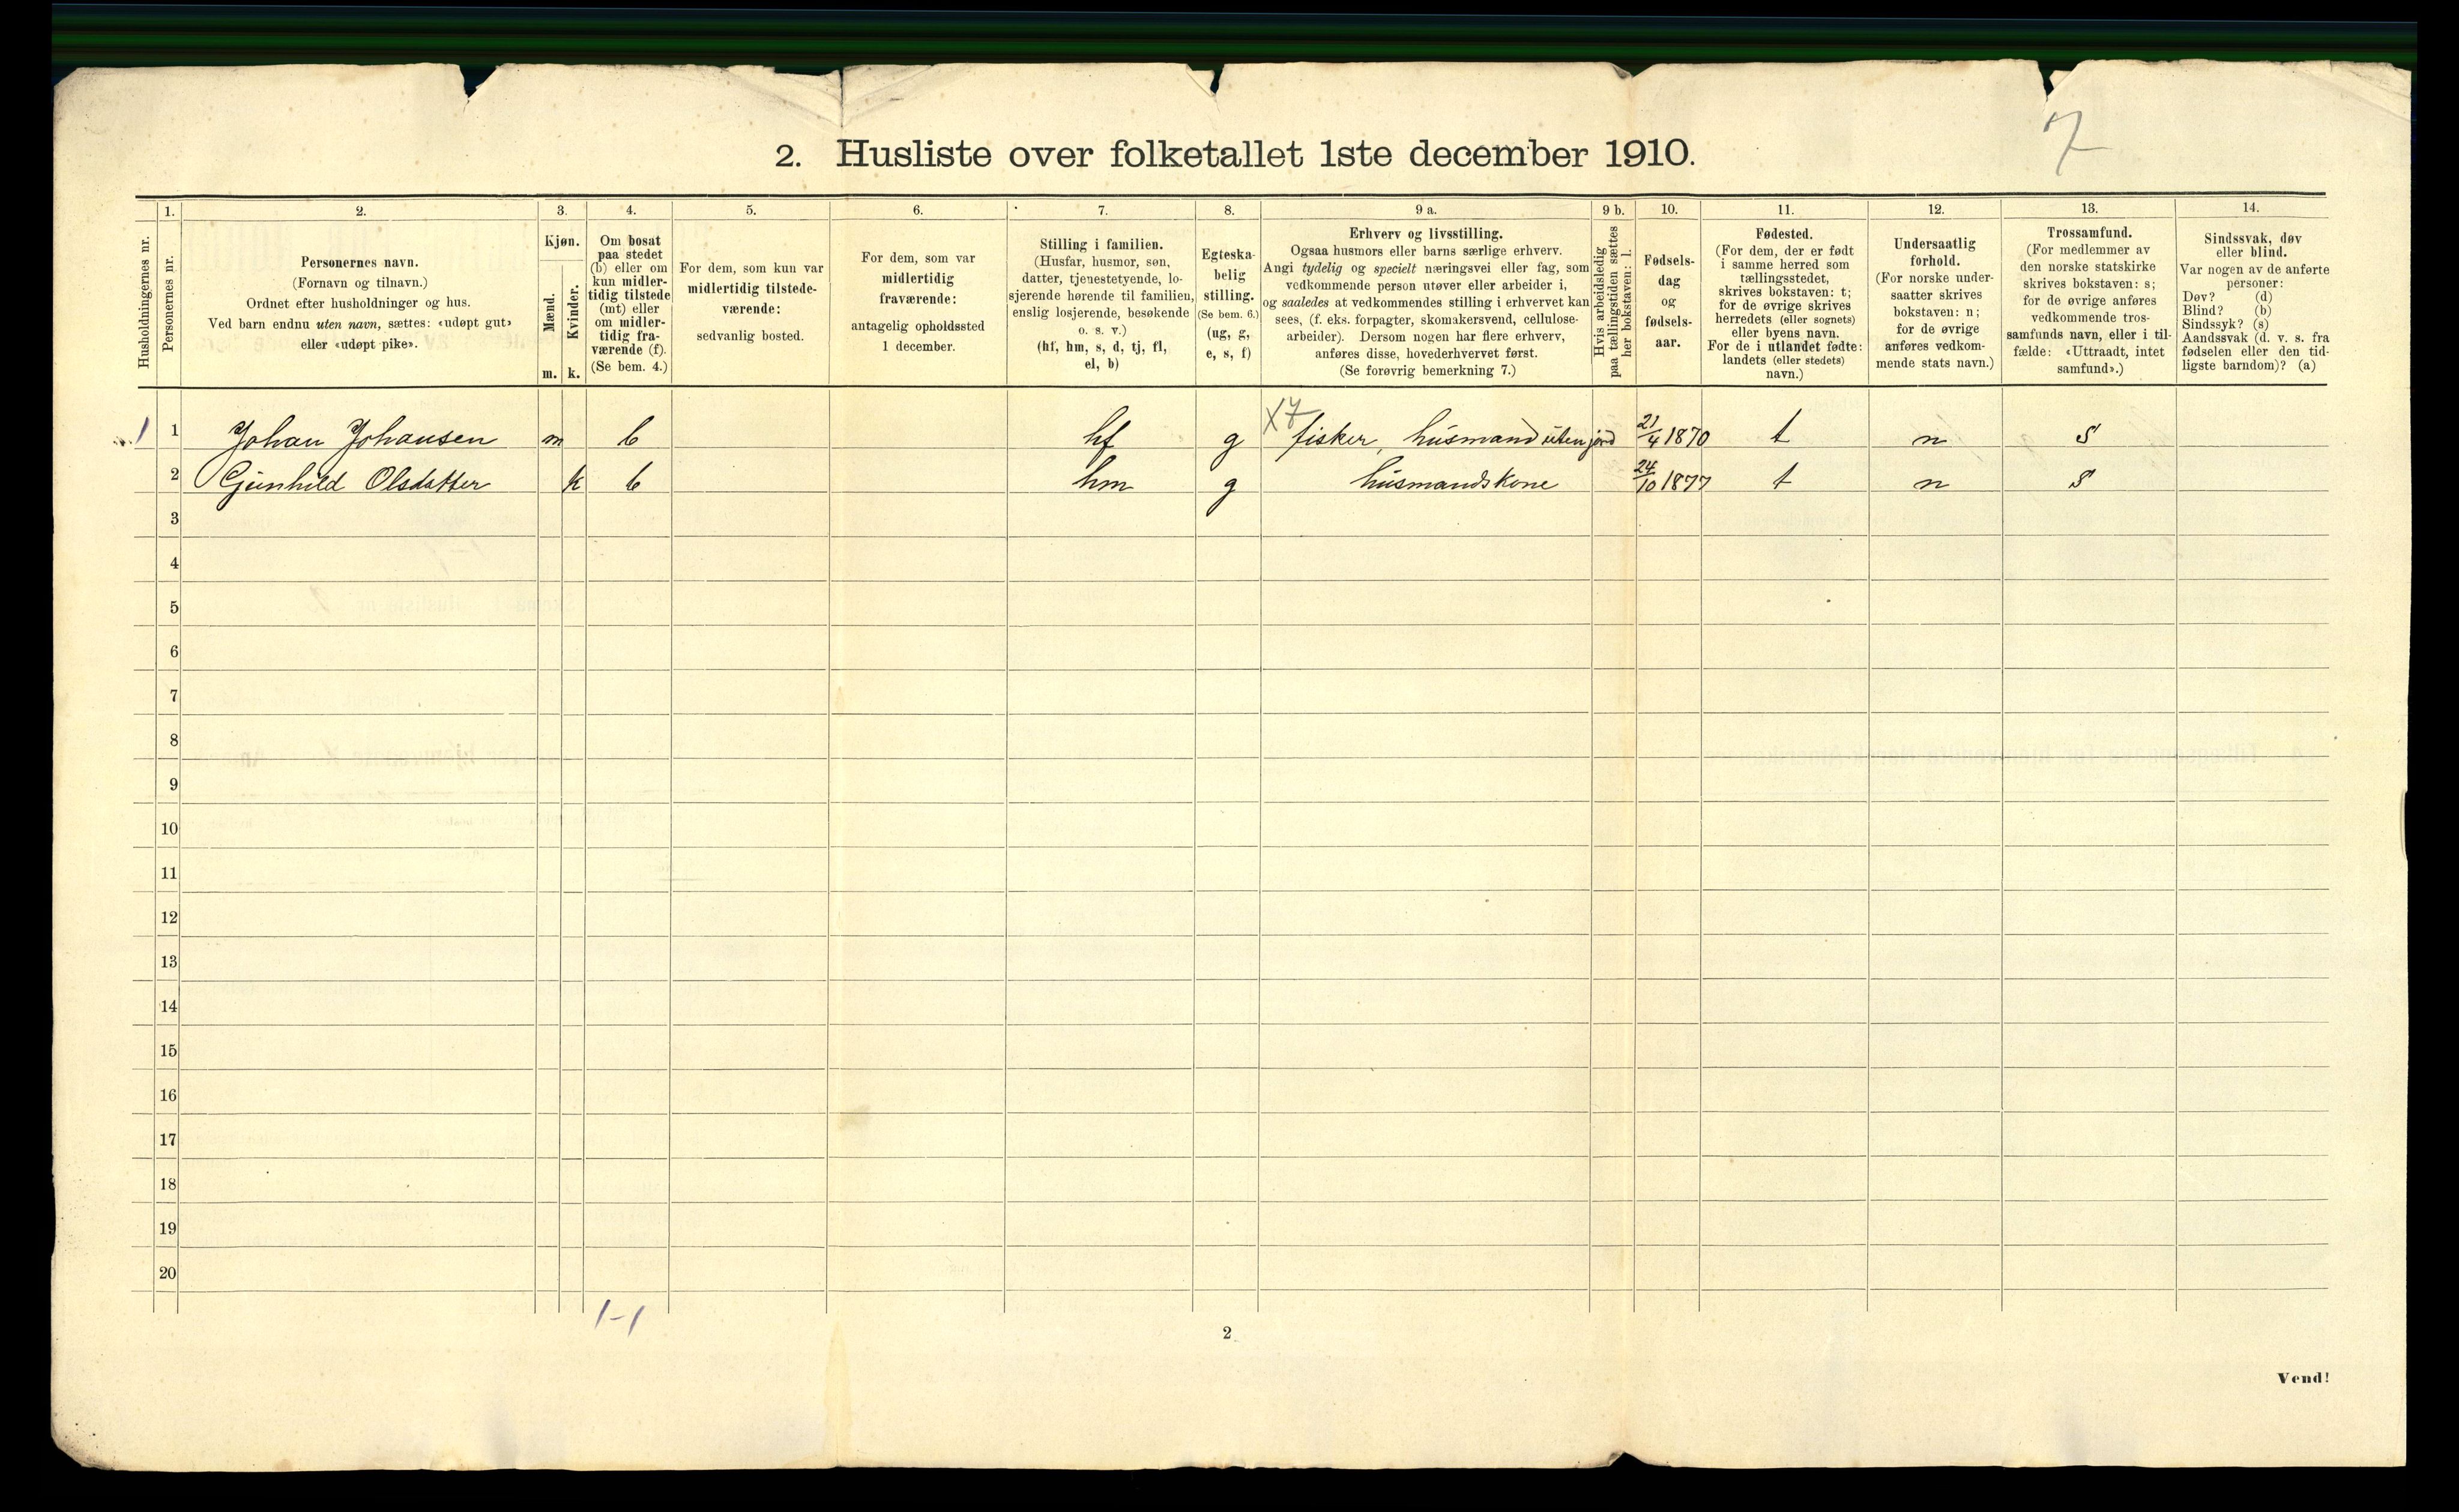 7
2. Husliste over folketallet 1ste december 1910.
Husholdningernes nr.
1.
Personernes nr.
2.
Personernes navn.
(Fornavn og tilnavn.)
Ordnet efter husholdninger og hus.
Ved barn endnu uten navn, sættes: «udøpt gut»
eller «udøpt pike».
3.
Kjøn.
Mænd.
m.
Kvinder.
k.
4.
Om bosat
paa stedet
(b) eller om
kun midler-
tidig tilstede
(mt) eller
om midler-
tidig fra-
værende (f).
(Se bem. 4.)
5.
For dem, som kun var
midlertidig tilstede-
værende:
sedvanlig bosted.
6.
For dem, som var
midlertidig
fraværende:
antagelig opholdssted
1 december.
7.
Stilling i familien.
(Husfar, husmor, søn,
datter, tjenestetyende, lo-
sjerende hørende til familien,
enslig losjerende, besøkende
o. s. v.)
(hf, hm, s, d, tj, fl,
el, b)
8.
Egteska-
belig
stilling.
(Se bem. 6.)
(ug, g,
e, s, f)
9 a.
Erhverv og livsstilling.
Ogsaa husmors eller barns særlige erhverv.
Angi tydelig og specielt næringsvei eller fag, som
vedkommende person utøver eller arbeider i,
og saaledes at vedkommendes stilling i erhvervet kan
sees, (f. eks. forpagter, skomakersvend, cellulose-
arbeider). Dersom nogen har flere erhverv,
anføres disse, hovederhvervet først.
(Se forøvrig bemerkning 7.)
9 b.
Hvis arbeidsledig
paa tællingstiden sættes
her bokstaven: l.
10.
Fødsels-
dag
og
fødsels-
aar.
11.
Fødested.
(For dem, der er født
i samme herred som
tællingsstedet,
skrives bokstaven: t;
for de øvrige skrives
herredets (eller sognets)
eller byens navn.
For de i utlandet fødte:
landets (eller stedets)
navn.)
12.
Undersaatlig
forhold.
(For norske under-
saatter skrives
bokstaven: n;
for de øvrige
anføres vedkom-
mende stats navn.)
13.
Trossamfund.
(For medlemmer av
den norske statskirke
skrives bokstaven: s;
for de øvrige anføres
vedkommende tros-
samfunds navn, eller i til-
fælde: «Uttraadt, intet
samfund».)
14.
Sindssvak, døv
eller blind.
Var nogen av de anførte
personer:
Døv? (d)
Blind? (b)
Sindssyk? (s)
Aandssvak (d. v. s. fra
fødselen eller den tid-
ligste barndom)? (a)
1 1 Johan Johansen m b hf g X7 fisker, husmand uten jord 21/4 1870 t n s
2 Gunhild Olsdatter k b hm g husmandskone 24/10 1877 t n s
3
4
5
6
7
8
9
10
11
12
13
14
15
16
17
18
19
20
1-1
2
Vend!